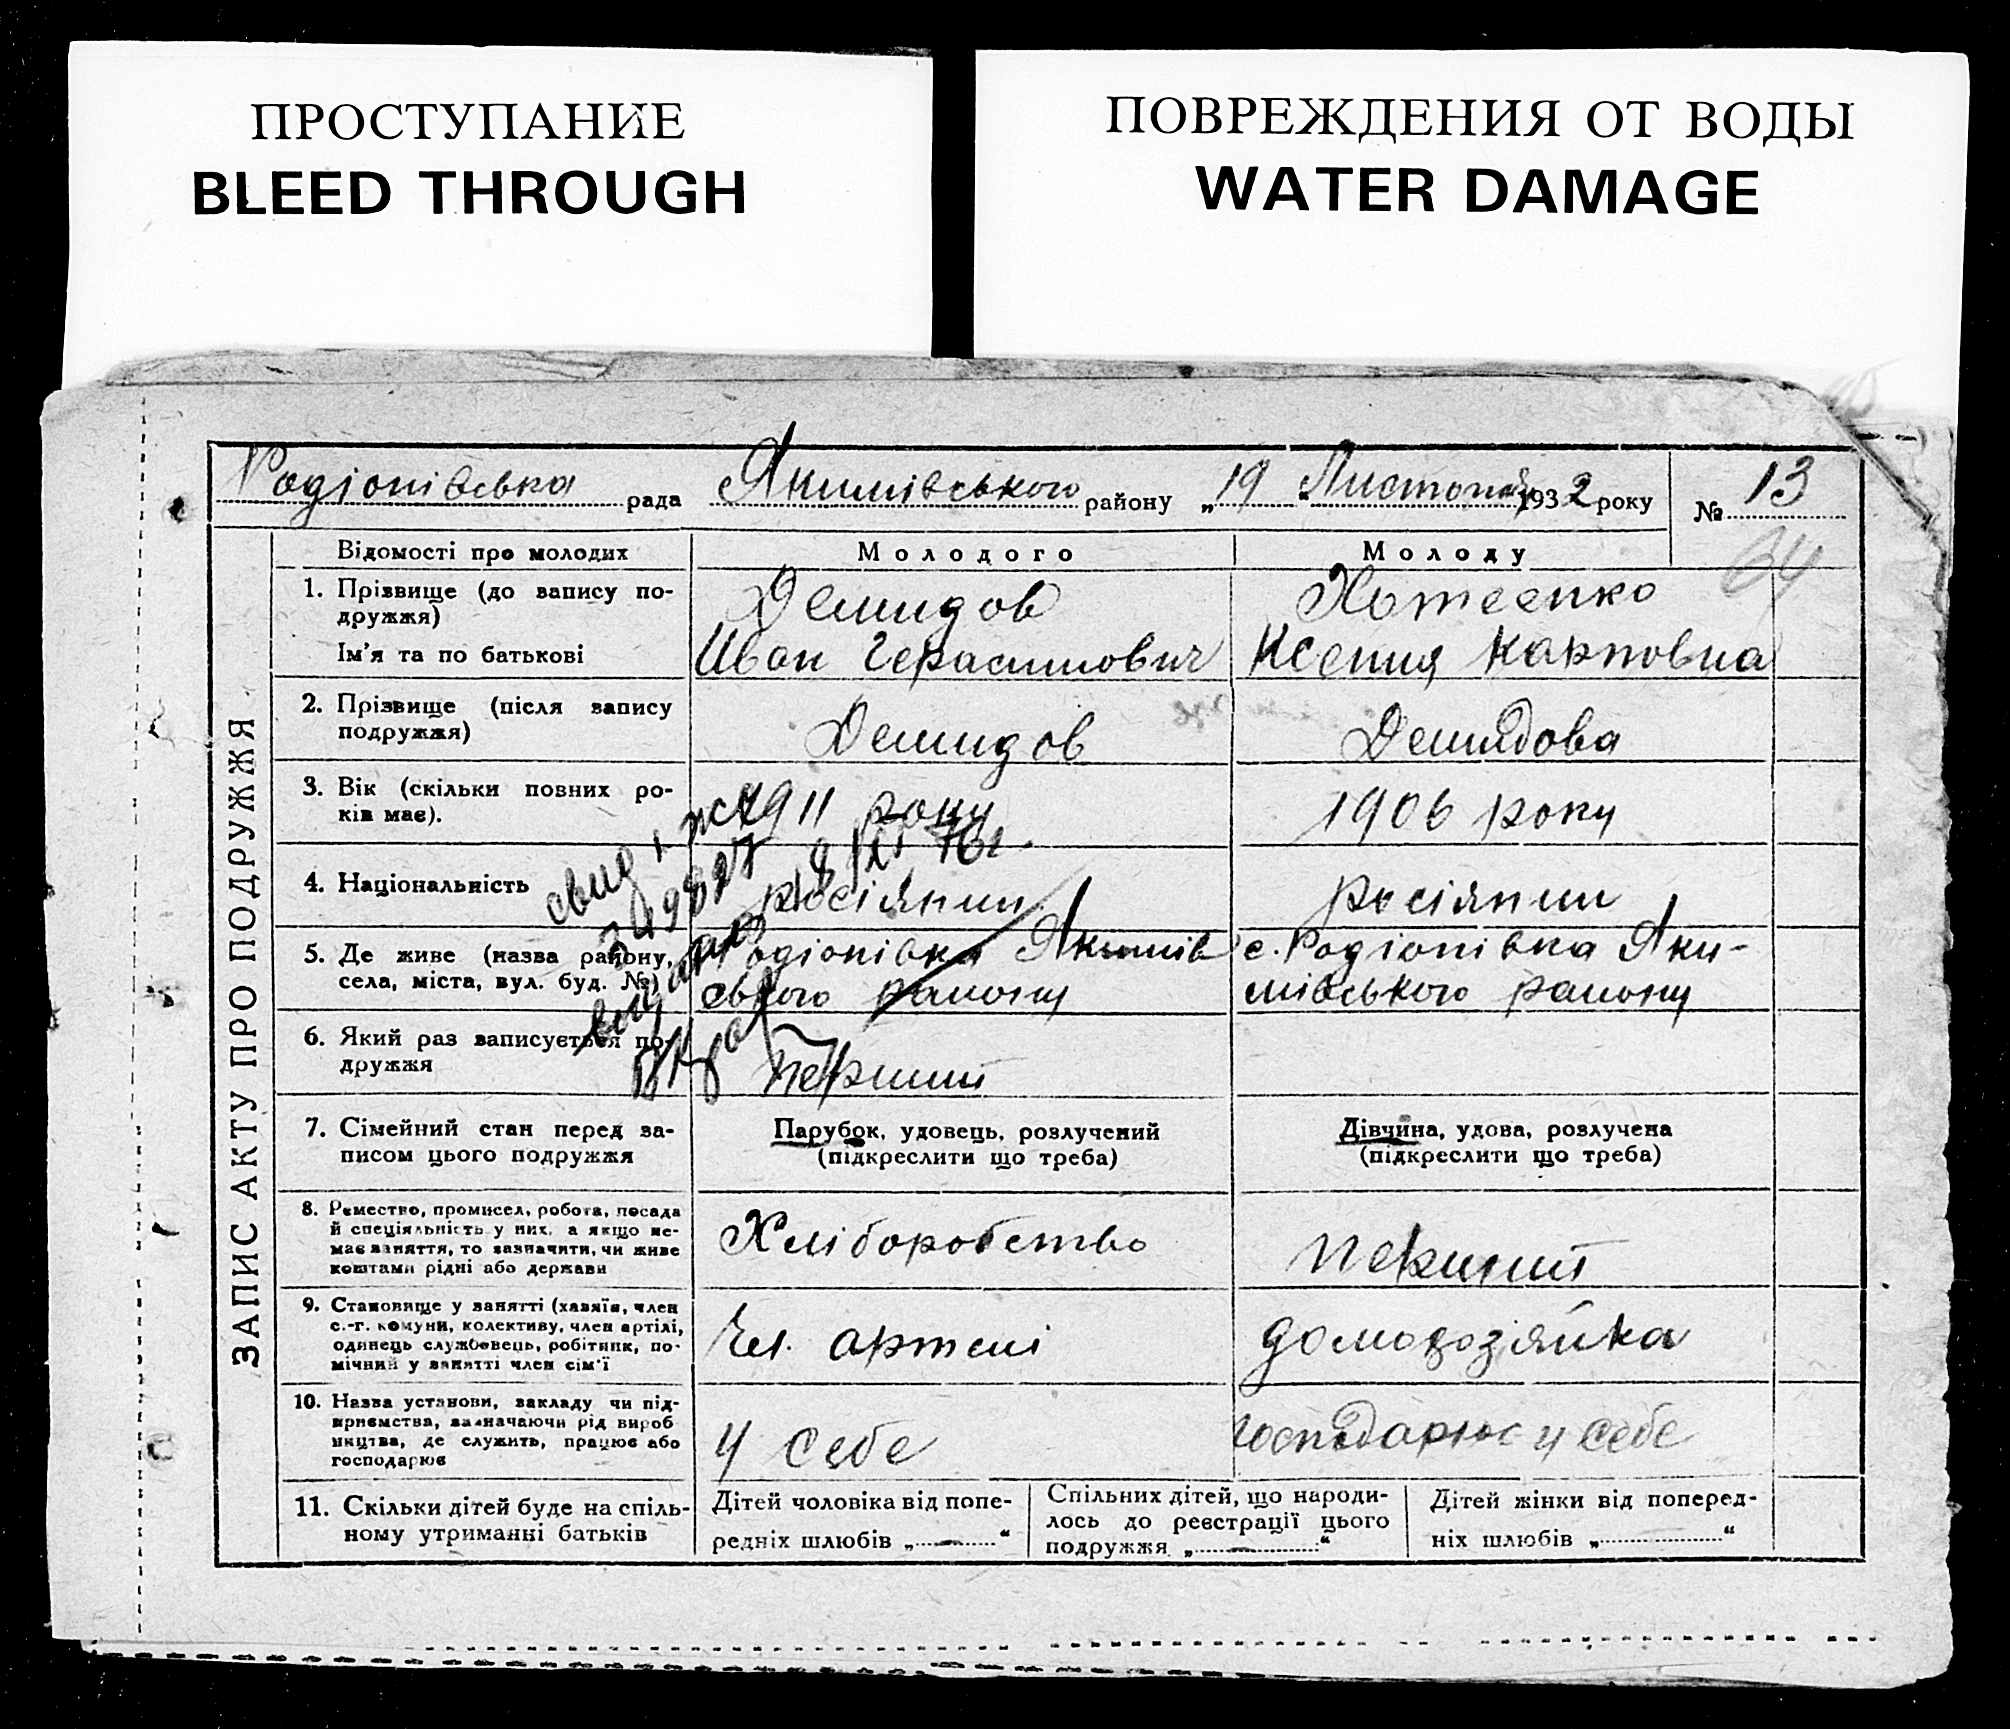 ПРОСТУПАНИЕ
BLEED THROUGH
ПОВРЕЖДЕНИЯ ОТ ВОДЫ
WATER DAMAGE
Родіонівська рада Якимівського району „19 Листопад 1932 року № 13
64
ЗАПИС АКТУ ПРО ПОДРУЖЖЯ
Відомості про молодих
Молодого
Молоду
1. Прізвище (до запису по-
дружжя)
Ім'я та по батькові
Демидов
Иван Герасимович
Ксения Карповна
2. Прізвище (після запису
подружжя)
Демидов
Демидова
3. Вік (скільки повних ро-
ків має).
1911 року
1906 року
4. Національність
росіянин
росіянин
5. Де живе (назва району,
села, міста, вул. буд. №)
Родіонівка Якимів
ського району
с. Родіонівка Яки-
мівського району
6. Який раз записується по-
дружжя
перший
7. Сімейний стан перед за-
писом цього подружжя
Парубок, удовець, розлучений
(підкреслити що треба)
Дівчина, удова, розлучена
(підкреслити що треба)
8. Ремество, промисел, робота, посада
й спеціяльність у них, а якщо не-
має заняття, то зазначити, чи живе
коштами рідні або держави
Хліборобство
перший
9. Становище у занятті (хазяїн, член
с.-г. комуни, колективу, член артілі,
одинець службовець, робітник, по-
мічний у занятті член сім'ї
Чл. артелі
домохозяйка
10. Назва установи, закладу чи під-
приємства, зазначаючи рід вироб
ництва, де служить, працює або
господарює
у себе
господарює у себе
11. Скільки дітей буде на спіль-
ному утриманні батьків
Дітей чоловіка від попе-
редніх шлюбів „ — “
Спільних дітей, що народи-
лось до реєстрації цього
подружжя „ — “
Дітей жінки від поперед-
ніх шлюбів „ “
свид
349827
18/XI 76г.